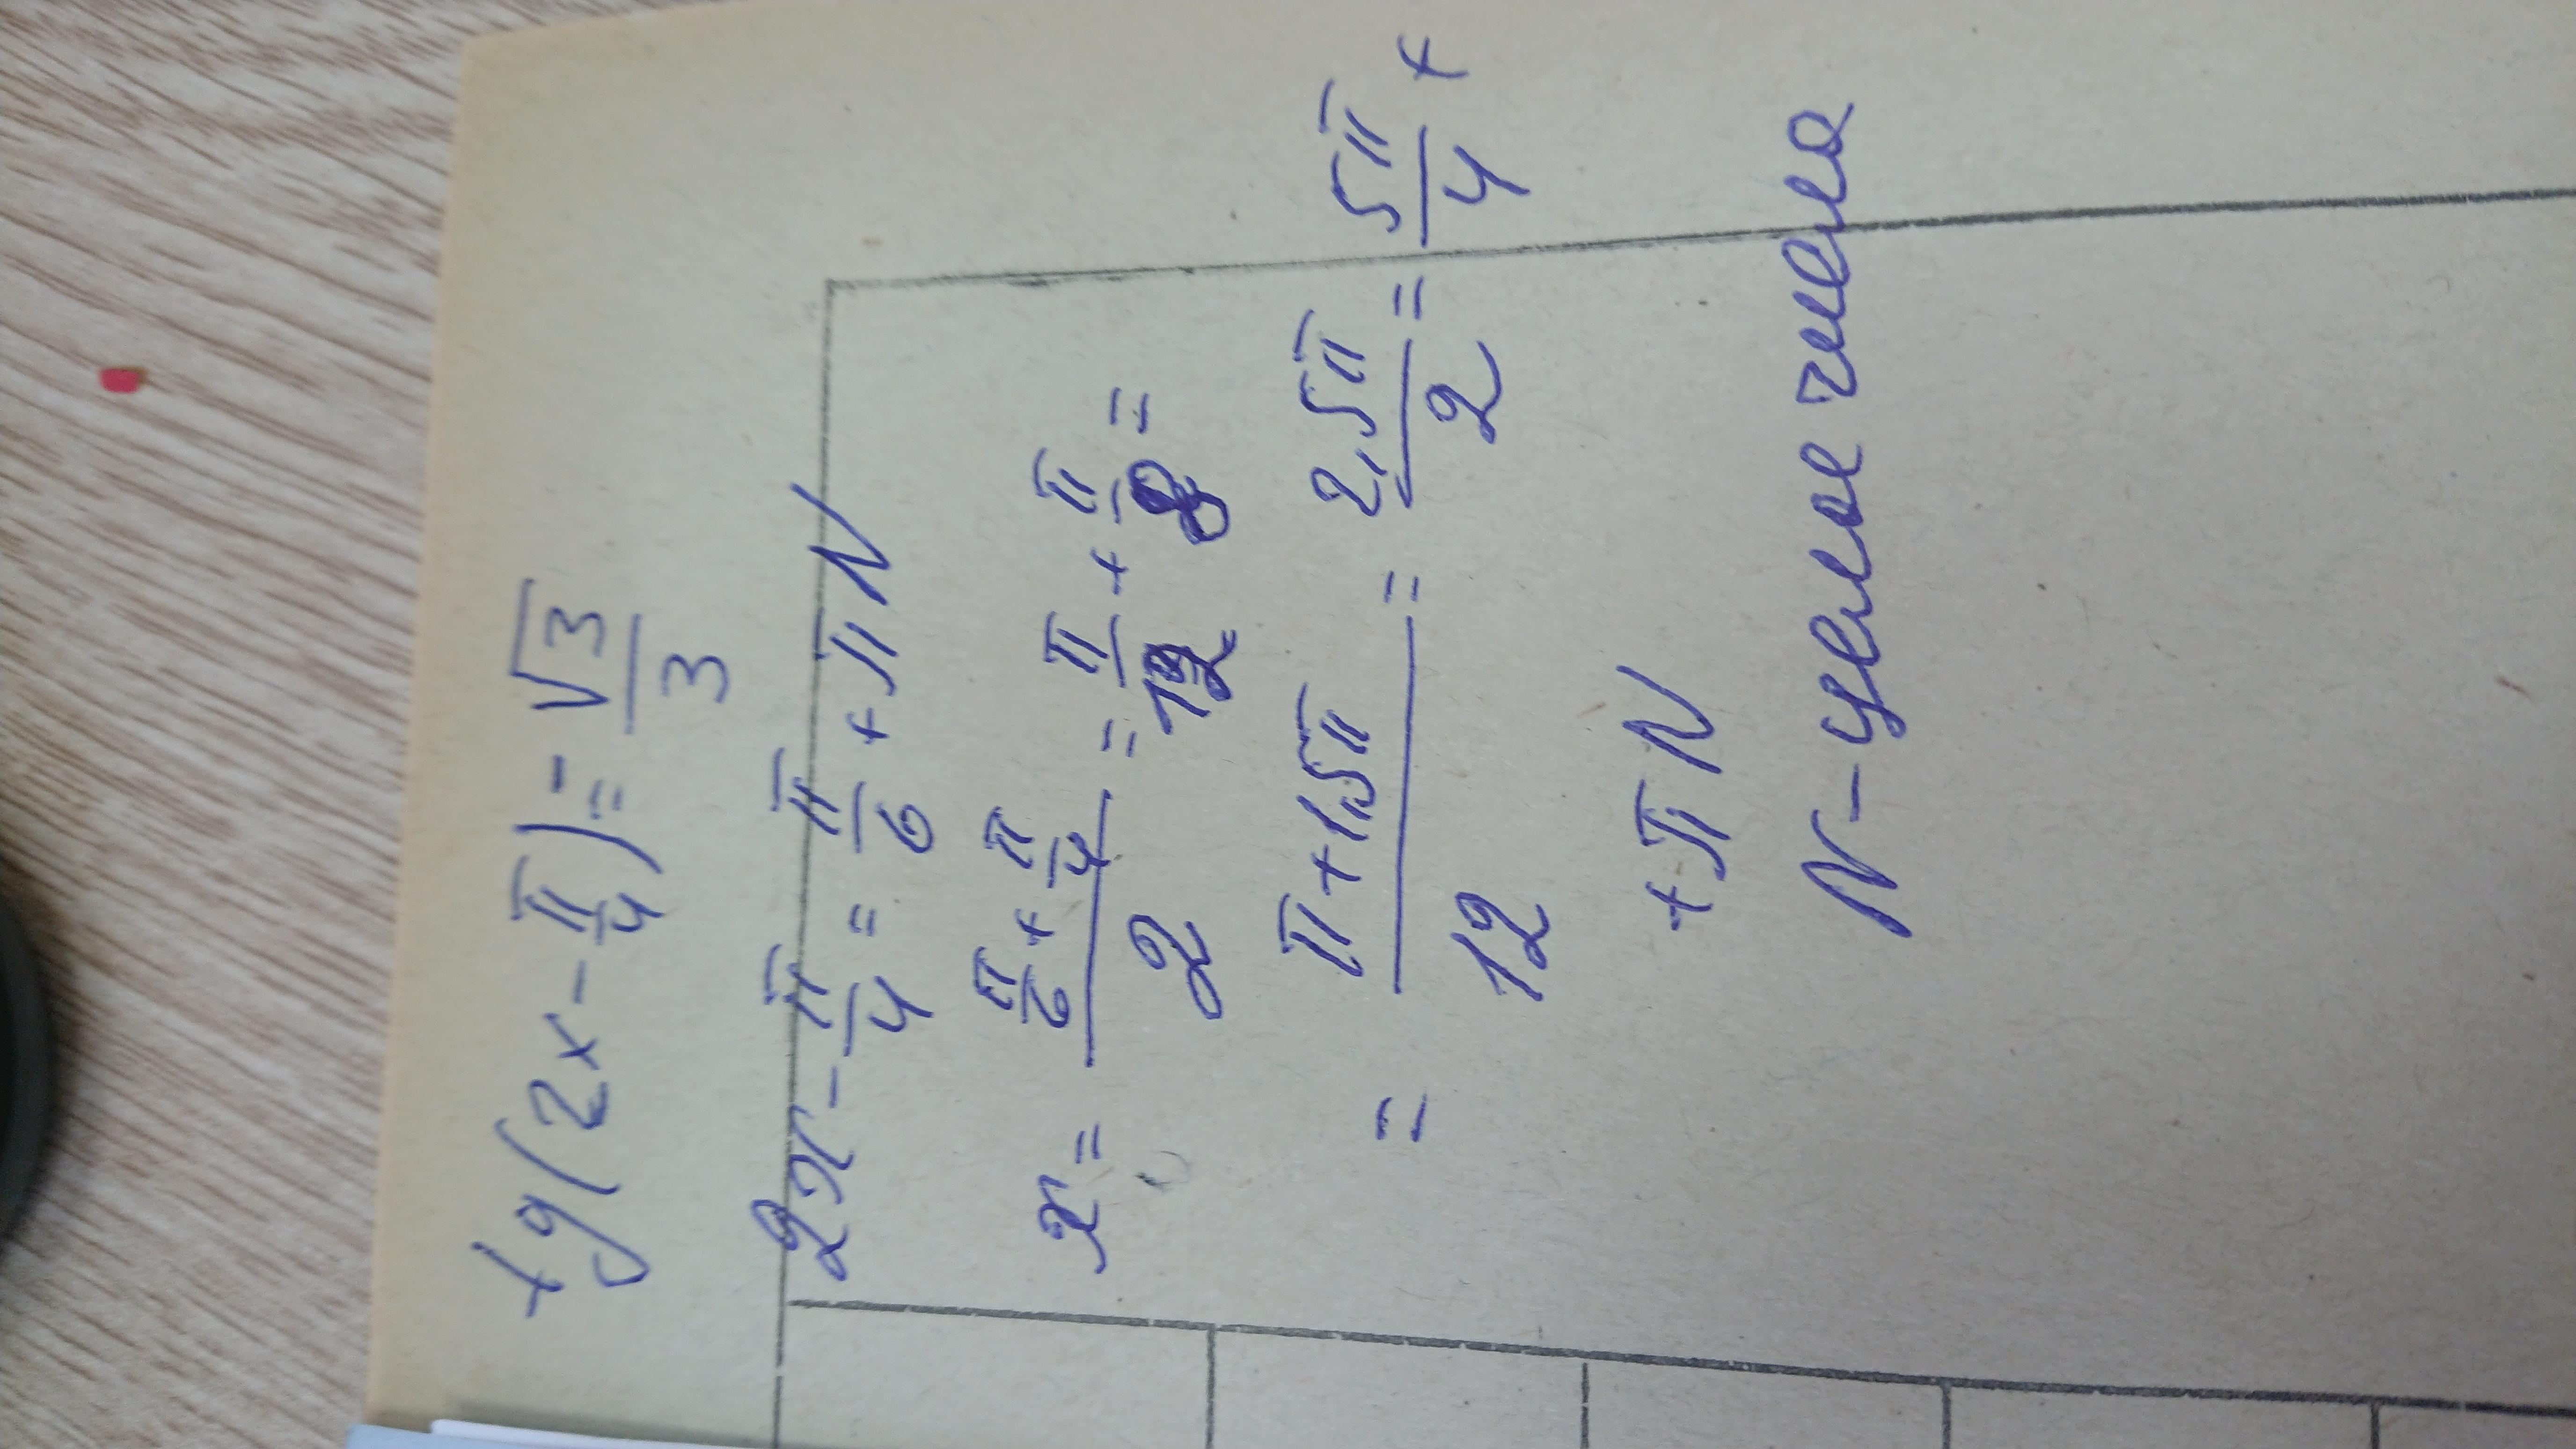 tg(2x - π/4) = -√3/3
2x - π/4 = π/6 + πN
x = (π/6 + π/4)/2 = π/12 + π/8 =
= (π + 1,5π)/12 = 2,5π/2 = 5π/4 +
+ πN
N - целое число